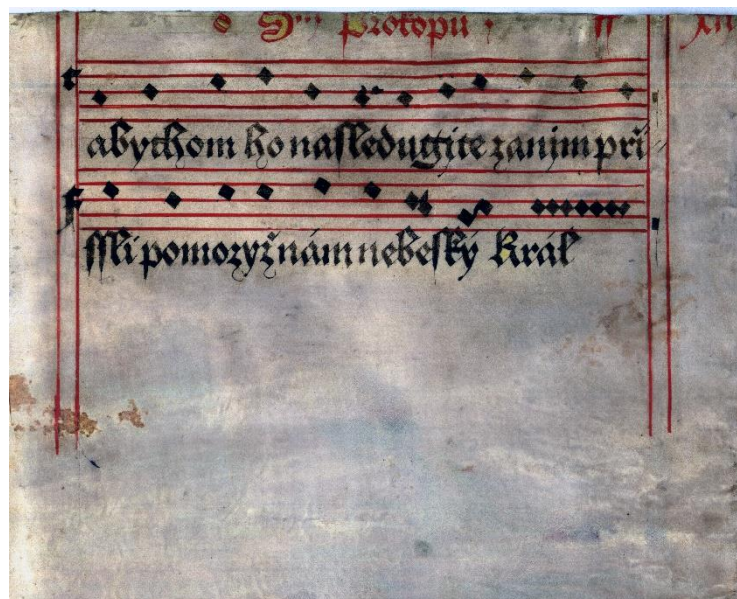 o S. Prokopu
abychom ho nasledugijte zanijm při
ssli pomozyž nám nebeský Král